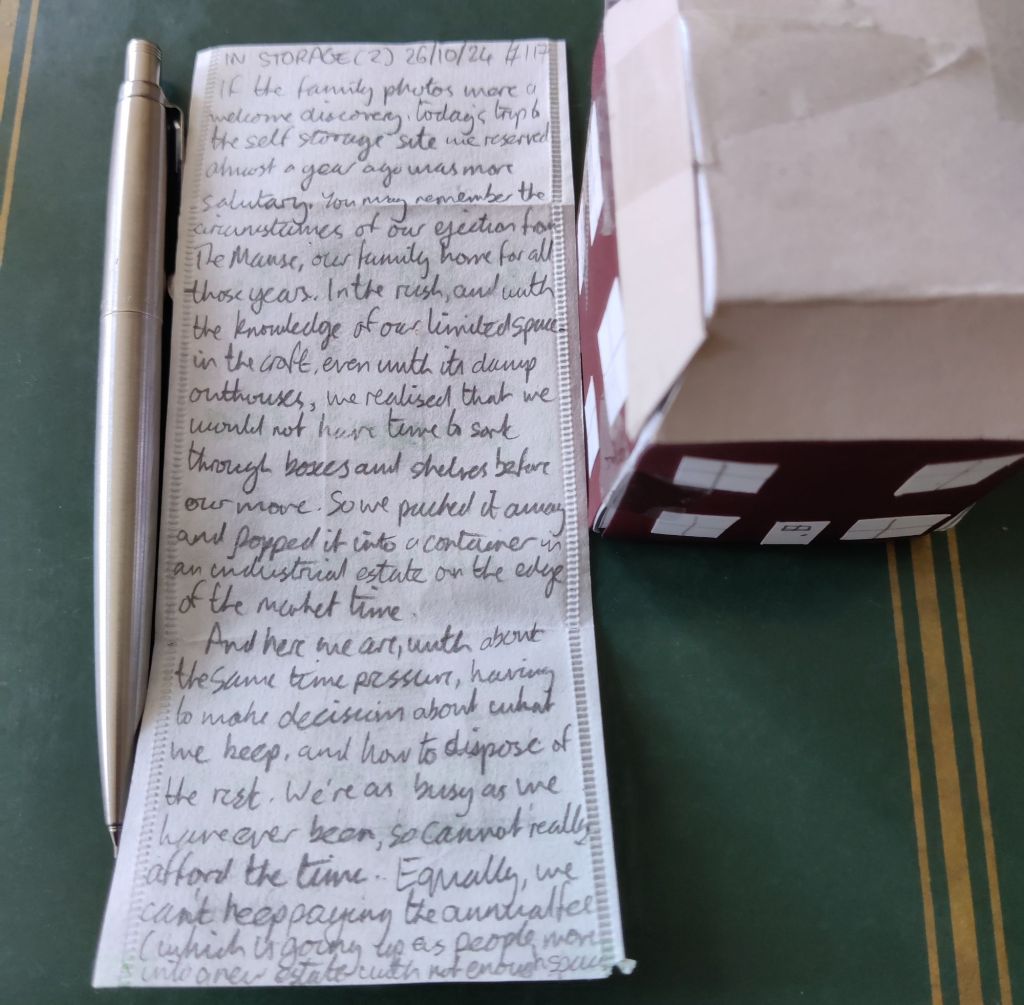 IN STORAGE (2) 26/10/24 #117
If the family photos were a
welcome discovery, today's trip to
the self storage site we reserved
almost a year ago was more
salutary. You may remember the
circumstances of our ejection from
The Manse, our family home for all
those years. In the rush, and with
the knowledge of our limited space
in the croft, even with its damp
outhouses, we realised that we
would not have time to sort
through boxes and shelves before
our move. So we packed it away
and popped it into a container in
an industrial estate on the edge
of the market time.
And here we are, with about
the same time pressure, having
to make decision about what
we keep, and how to dispose of
the rest. We're as busy as we
have ever been, so cannot really
afford the time. Equally, we
can't keep paying the annual fee
(which is going up as people move
into a new estate with not enough space
B.